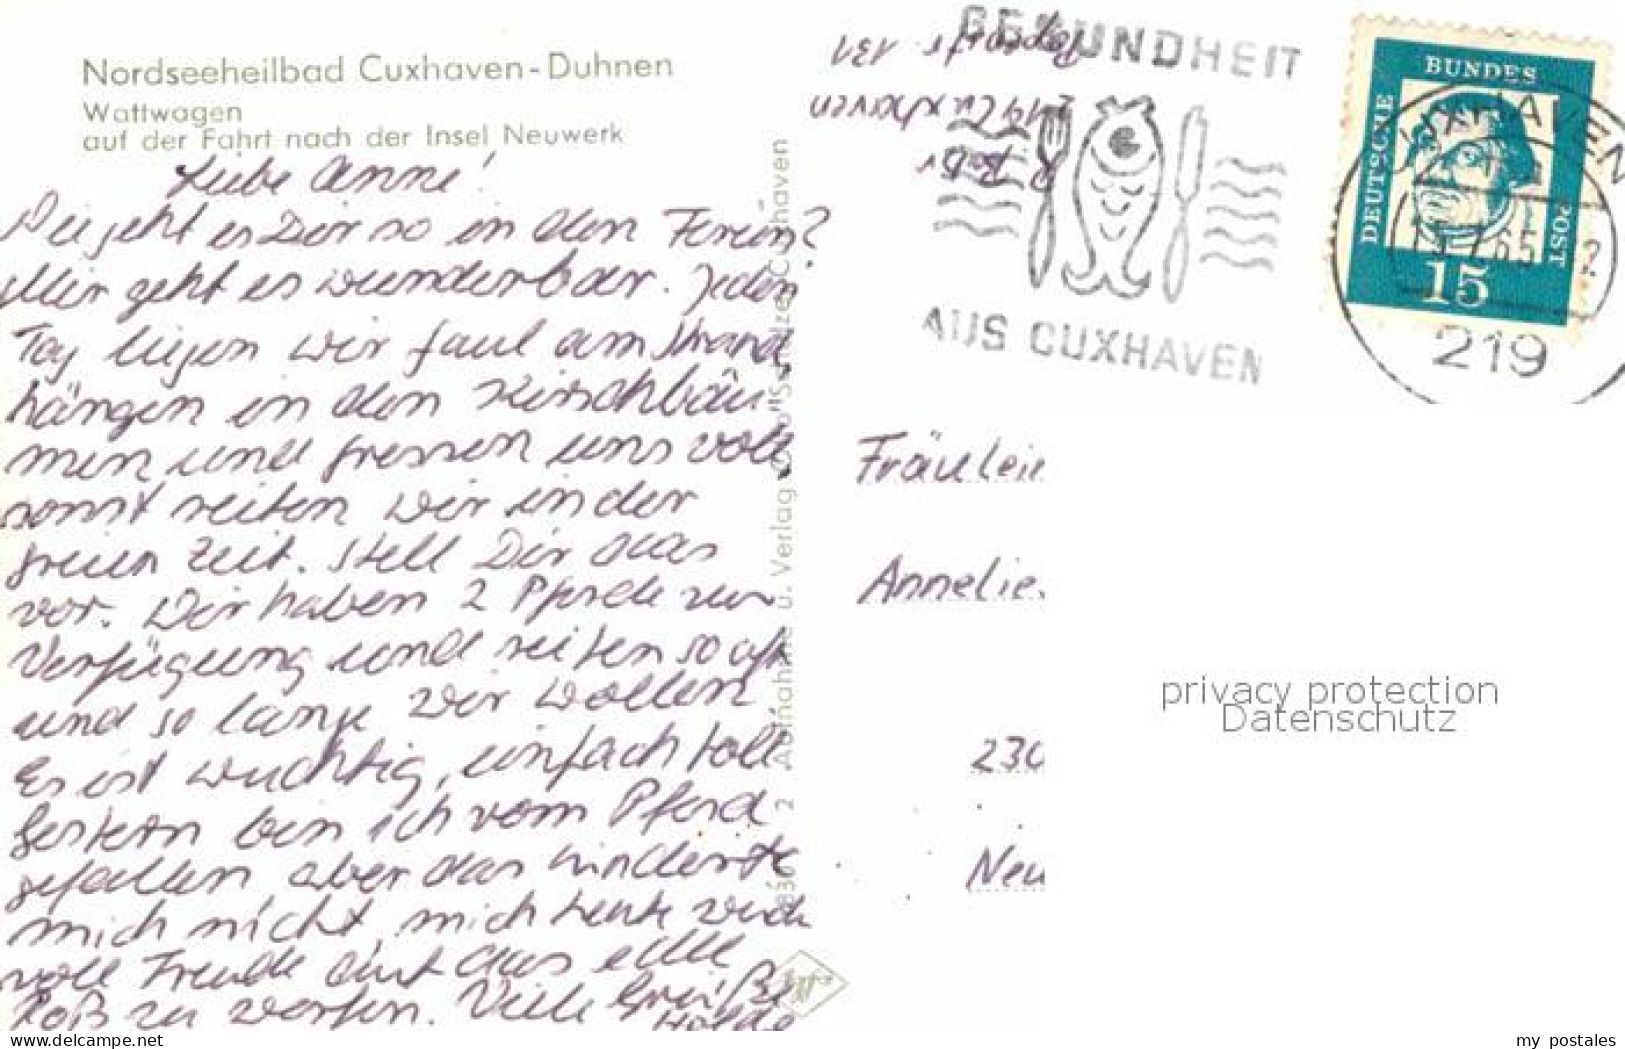 Nordseeheilbad Cuxhaven-Duhnen
Wattwagen
auf der Fahrt nach der Insel Neuwerk
Liebe Anne!
Wie geht es Dir so in den Ferien?
Mir geht es wunderbar. Jeden
Tag liegen wir faul am Strand
hängen in den Kirschbäu-
men und fressen uns voll
sonst reiten wir in der
freien Zeit. Stell Dir das
vor. Wir haben 2 Pferde zur
Verfügung und reiten so oft
und so lange wir wollen.
Es ist wuchtig, einfach toll
Gestern bin ich vom Pferd
gefallen aber das hinderte
mich nicht, mich heute
voll Freude aufs
Roß zu werfen. Viele Grüße
2 Aufnahme u. Verlag Cuxhaven
131
219 Cuxhaven
GESUNDHEIT
AUS CUXHAVEN
DEUTSCHE
BUNDES
POST
15
CUXHAVEN
219
Fräulein
Annelie
230
Neu
privacy protection
Datenschutz
www.delcampe.net
my_postales